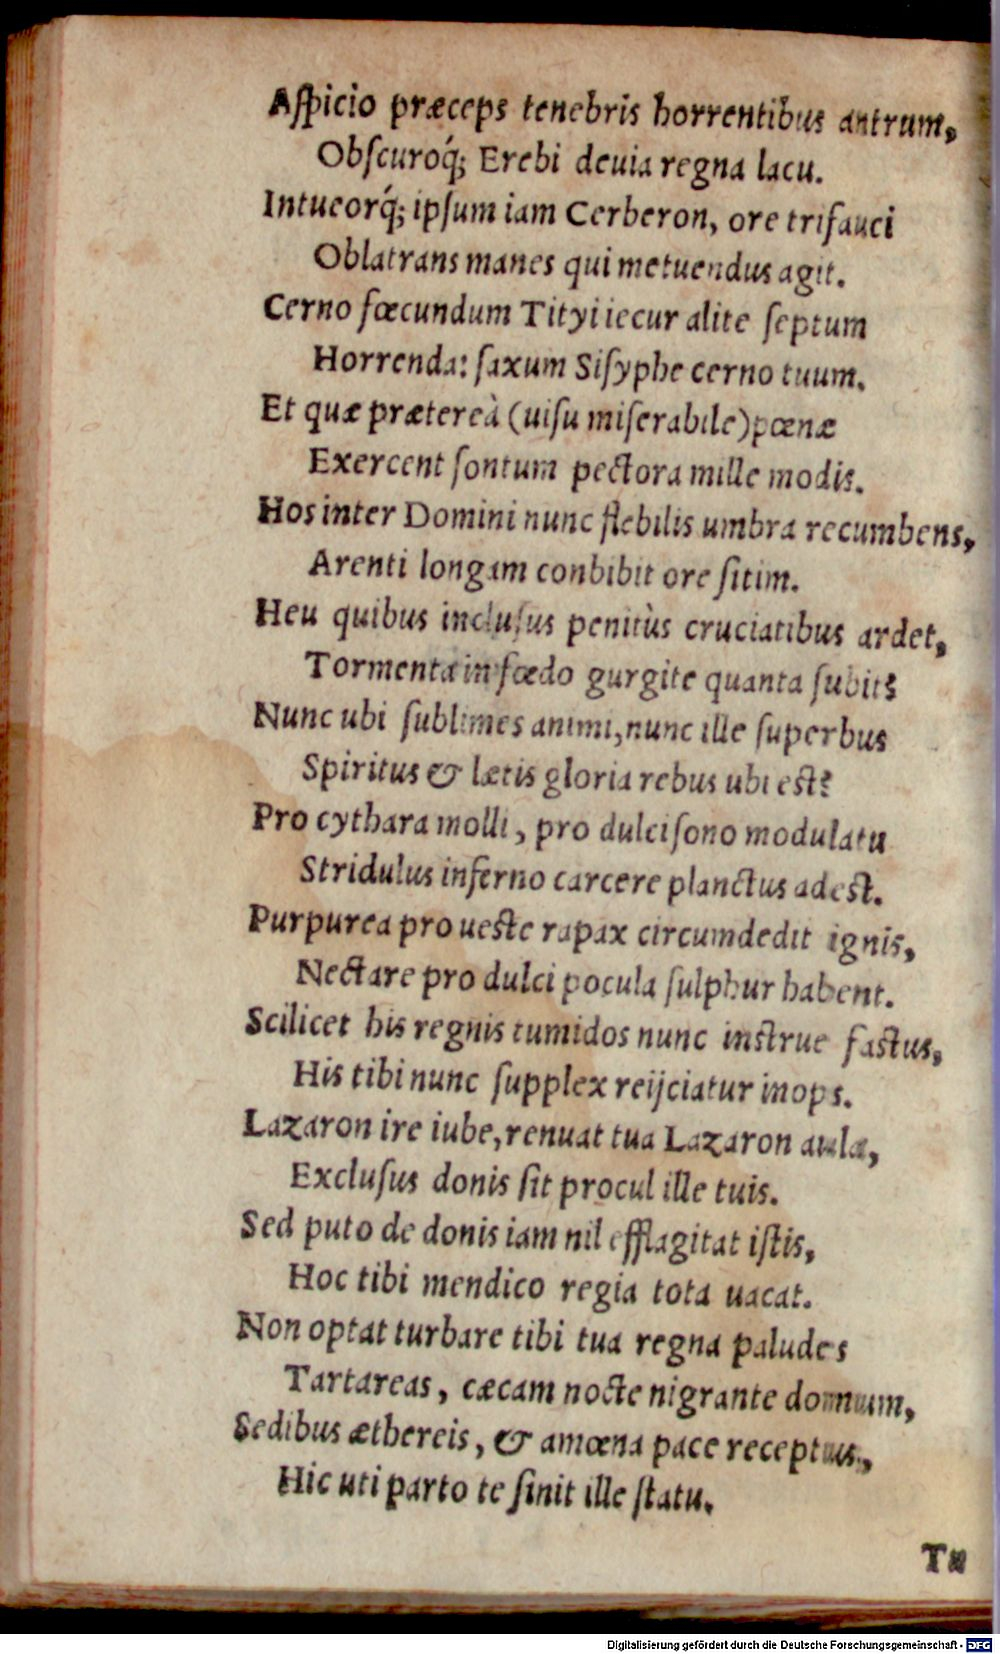 Aſpicio præceps tenebris horrentibus antrum,
Obſcuroq́; Erebi deuia regna lacu.
Intueorq́; ipſum iam Cerberon, ore trifauci
Oblatrans manes qui metuendus agit.
Cerno fœcundum Tityi iecur alite ſeptum
Horrenda: ſaxum Siſyphe cerno tuum.
Et quæ prætereà (uiſu miſerabile) pœnæ
Exercent ſontum pectora mille modis.
Hos inter Domini nunc flebilis umbra recumbens,
Arenti longam conbibit ore ſitim.
Heu quibus incluſus penitùs cruciatibus ardet,
Tormenta in fœdo gurgite quanta ſubit?
Nunc ubi ſublimes animi, nunc ille ſuperbus
Spiritus & lætis gloria rebus ubi est?
Pro cythara molli, pro dulciſono modulatu
Stridulus inferno carcere planctus adest.
Purpurea pro ueste rapax circumdedit ignis,
Nectare pro dulci pocula ſulphur habent.
Scilicet his regnis tumidos nunc instrue fastus,
His tibi nunc ſupplex reijciatur inops.
Lazaron ire iube, renuat tua Lazaron aula,
Excluſus donis ſit procul ille tuis.
Sed puto de donis iam nil efflagitat iſtis,
Hoc tibi mendico regia tota uacat.
Non optat turbare tibi tua regna paludes
Tartareas, cæcam nocte nigrante domum,
Sedibus æthereis, & amœna pace receptus,
Hic uti parto te ſinit ille ſtatu.
Tu
Digitalisierung gefördert durch die Deutsche Forschungsgemeinschaft - DFG